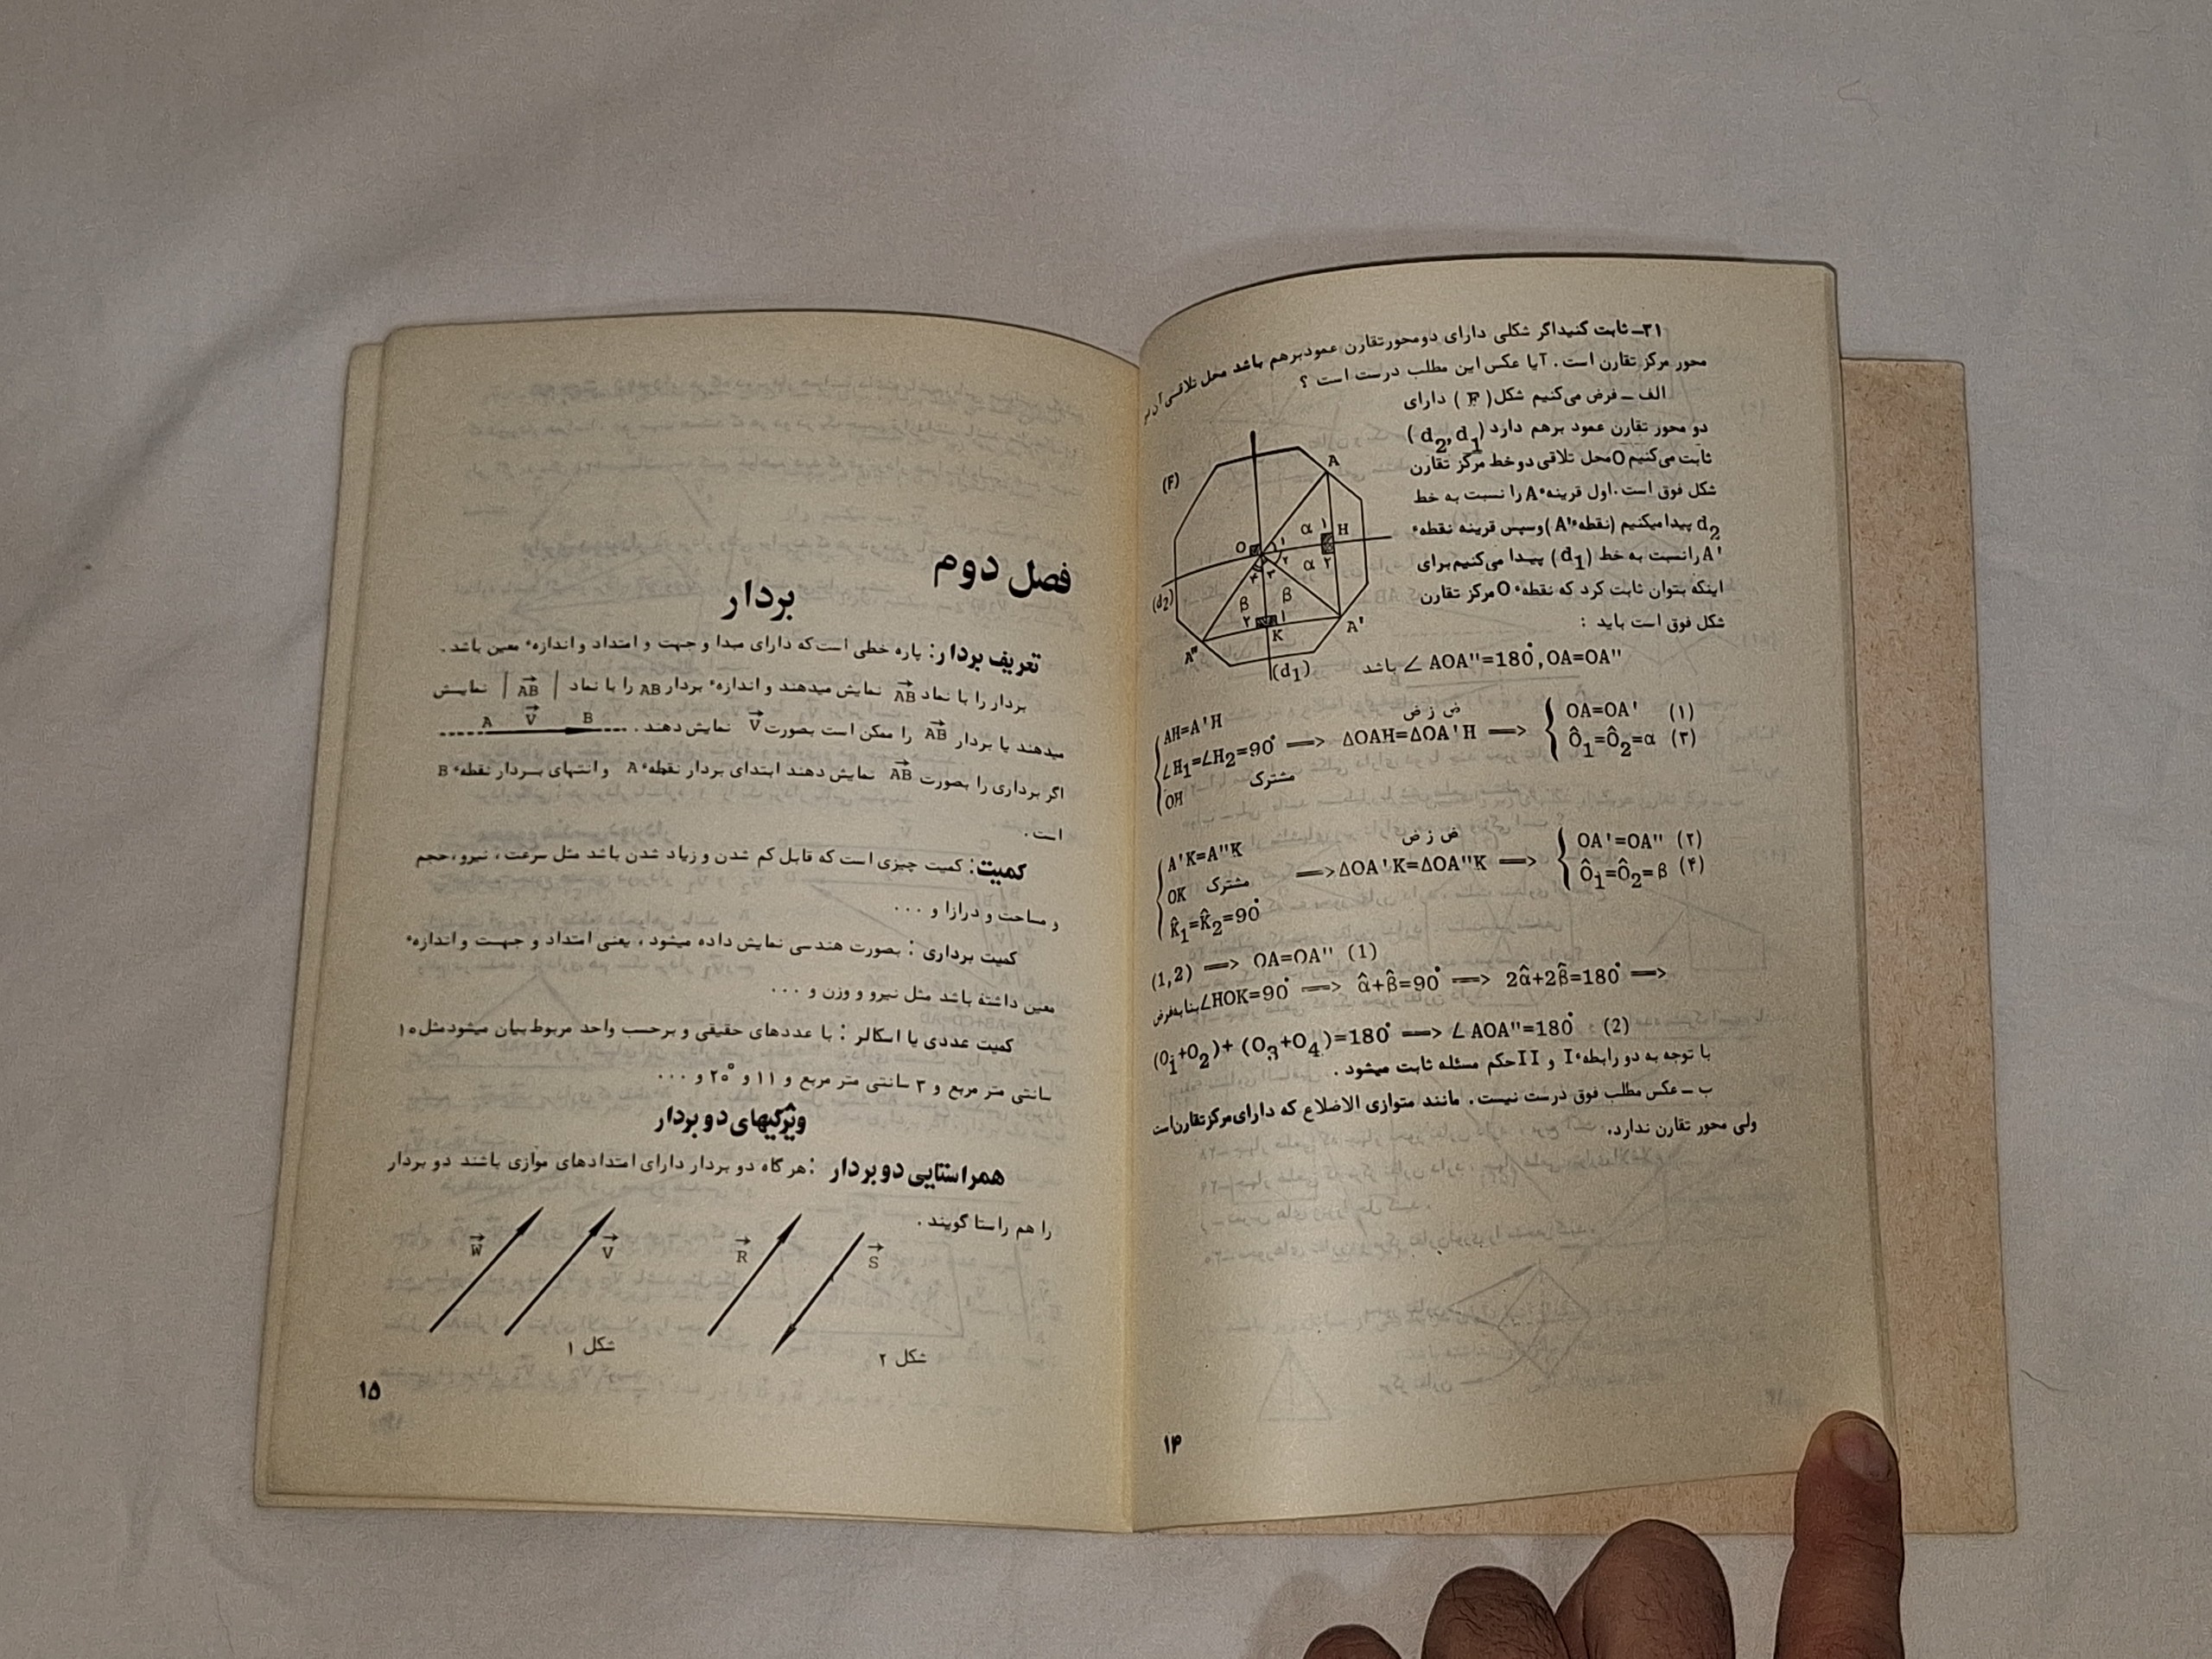 ۳۱ـ ثابت کنیداگر شکلی دارای دومحورتقارن عمودبرهم باشد محل تلاقی آن
محور مرکز تقارن است . آیا عکس این مطلب درست است ؟
الف ـ فرض می‌کنیم شکل( F ) دارای
دو محور تقارن عمود برهم دارد (d2,d1)
ثابت می‌کنیم Oمحل تلاقی دوخط مرکز تقارن
شکل فوق است.اول قرینهٔ A را نسبت به خط
d2 پیدا میکنیم (نقطهٔ A')وسپس قرینه نقطهٔ
A' رانسبت به خط (d1) پیدا می‌کنیم‌برای
اینکه بتوان ثابت کرد که نقطهٔ O مرکز تقارن
شکل فوق است باید :
∠ AOA"=180°, OA=OA" باشد
(F)
A
α ۱ H
O ۱
۲ α ۲
۴ ۳
(d2)
β β
۲ ۱
K A'
A"
(d1)
AH=A'H
∠H1=∠H2=90° ⟹ ΔOAH=ΔOA'H ⟹
OH مشترک
ض ز ض
OA=OA' (۱)
Ô1=Ô2=α (۳)
A'K=A"K
OK مشترک ⟹ ΔOA'K=ΔOA"K ⟹
K̂1=K̂2=90°
ض ز ض
OA'=OA" (۲)
Ô1=Ô2=β (۴)
(1,2) ⟹ OA=OA" (1)
بنابه‌فرض ∠HOK=90° ⟹ α̂+β̂=90° ⟹ 2α̂+2β̂=180° ⟹
(O1+O2)+(O3+O4)=180° ⟹ ∠ AOA"=180° (2)
با توجه به دو رابطهٔ I و II حکم مسئله ثابت میشود .
ب ـ عکس مطلب فوق درست نیست . مانند متوازی الاضلاع که دارای‌مرکزتقارن‌است
ولی محور تقارن ندارد.
۱۴
فصل دوم
بردار
تعریف بردار: پاره خطی است‌که دارای مبدا و جهت و امتداد و اندازهٔ معین باشد .
بردار را با نماد AB⃗ نمایش میدهند و اندازهٔ بردار AB را با نماد | AB⃗ | نمایش
میدهند یا بردار AB⃗ را ممکن است بصورت V⃗ نمایش دهند .
A V⃗ B
اگر برداری را بصورت AB⃗ نمایش دهند ابتدای بردار نقطهٔ A و انتهای بردار نقطهٔ B
است .
کمیت: کمیت چیزی است که قابل کم شدن و زیاد شدن باشد مثل سرعت ، نیرو ،حجم
و مساحت و درازا و ...
کمیت برداری : بصورت هندسی نمایش داده میشود ، یعنی امتداد و جهت و اندازهٔ
معین داشته باشد مثل نیرو و وزن و ...
کمیت عددی یا اسکالر : با عددهای حقیقی و برحسب واحد مربوط‌بیان میشود مثل ۱۰
سانتی متر مربع و ۳ سانتی متر مربع و ۱۱ و ۲۰° و ...
ویژگیهای دو بردار
همراستایی دو بردار : هر گاه دو بردار دارای امتدادهای موازی باشند دو بردار
را هم راستا گویند .
W⃗ V⃗ R⃗ S⃗
شکل ۱ شکل ۲
۱۵